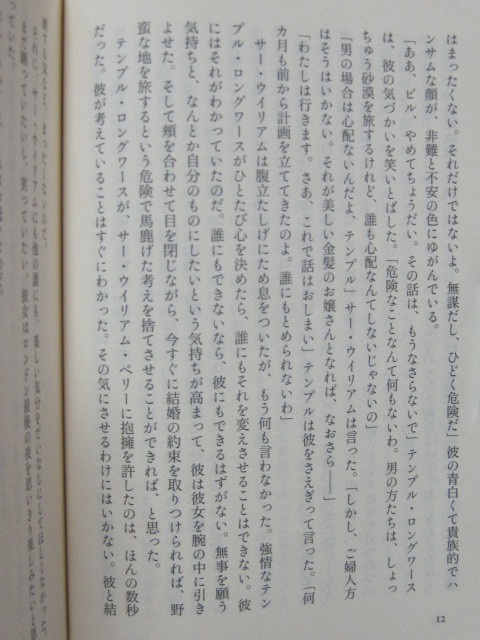 はまったくない。それだけではないよ。無謀だし、ひどく危険だ」彼の青白くて貴族的でハ
ンサムな顔が、非難と不安の色にゆがんでいる。
「ああ、ビル、やめてちょうだい。その話は、もうなさらないで」テンプル・ロングワース
は、彼の気づかいを笑いとばした。「危険なことなんて何もないわ。男の方たちは、しょっ
ちゅう砂漠を旅するけれど、誰も心配なんてしないじゃないの」
「男の場合は心配ないんだよ、テンプル」サー・ウイリアムは言った。「しかし、ご婦人方
はそうはいかない。それが美しい金髪のお嬢さんとなれば、なおさら――」
「わたしは行きます。さあ、これで話はおしまい」テンプルは彼をさえぎって言った。「何
カ月も前から計画を立ててきたのよ。誰にもとめられないわ」
サー・ウイリアムは腹立たしげにため息をついたが、もう何も言わなかった。強情なテン
プル・ロングワースがひとたび心を決めたら、誰にもそれを変えさせることはできない。彼
にはそれがわかっていたのだ。誰にもできないなら、彼にもできるはずがない。無事を願う
気持ちと、なんとか自分のものにしたいという気持ちが高まって、彼は彼女を腕の中に引き
よせた。そして頬を合わせて目を閉じながら、今すぐに結婚の約束を取りつけられれば、野
蛮な地を旅するという危険で馬鹿げた考えを捨てさせることができれば、と思った。
テンプル・ロングワースが、サー・ウイリアム・ペリーに抱擁を許したのは、ほんの数秒
だった。彼が考えていることはすぐにわかった。その気にさせるわけにはいかない。彼と結
12